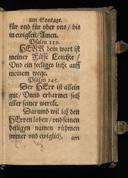 am Sontage.
für vnd für vber vns / bis
in ewigkeit / Amen.
Psalm 119.
HERR dein wort ist
meiner Füsse Leuchte /
Vnd ein liecht auff
meinem wege.
Psalm 145.
Der HErr ist allein
gut / Vnnd erbarmet sich
aller seiner werck.
Darumb wil ich den
HErren loben / vnd seinen
heiligen namen rühmen
immer vnd ewiglich.